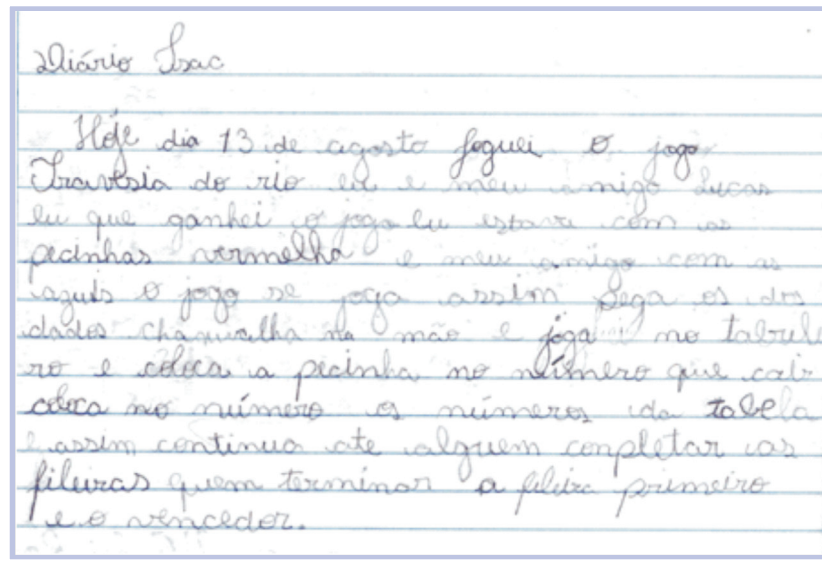 Diário Isac
Hoje dia 13 de agosto joguei o jogo
Travesia do rio eu e meu amigo Lucas
eu que ganhei o jogo eu estava com as
pecinhas vermelha e meu amigo com as
azuis o jogo se joga assim pega os dos
dados chaqualha na mão e joga no tabulei
ro e coloca a pecinha no número que cair
coloca no número os números da tabela
e assim continua ate alguem conpletar as
fileiras quem terminar a fileira primeiro
e o vencedor.